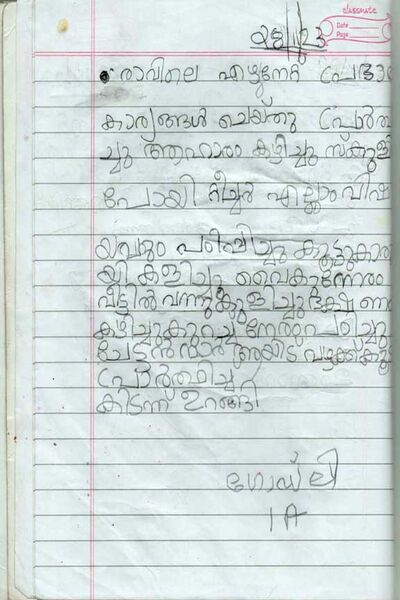 classmate
Date
Page
രാവിലെ എഴുന്നേറ്റ പ്രഭാത
കാര്യങ്ങൾ ചെയ്തു പ്രാർത്ഥി
ച്ചു ആഹാരം കഴിച്ചു സ്കൂളി
പോയി ടീച്ചർ എല്ലാം വിഷ
യവും പഠിപ്പിച്ചു കൂട്ടുകാരു
യി കളിച്ചു വൈകുന്നേരം
വീട്ടിൽ വന്നു കുളിച്ചു ഭക്ഷണം
കഴിച്ചു കുറച്ച് നേരം പഠിച്ചു
വഴക്ക്
പ്രാർത്ഥിച്ച്
കിടന്ന് ഉറങ്ങി
ഗോഡ് ലി
1 A